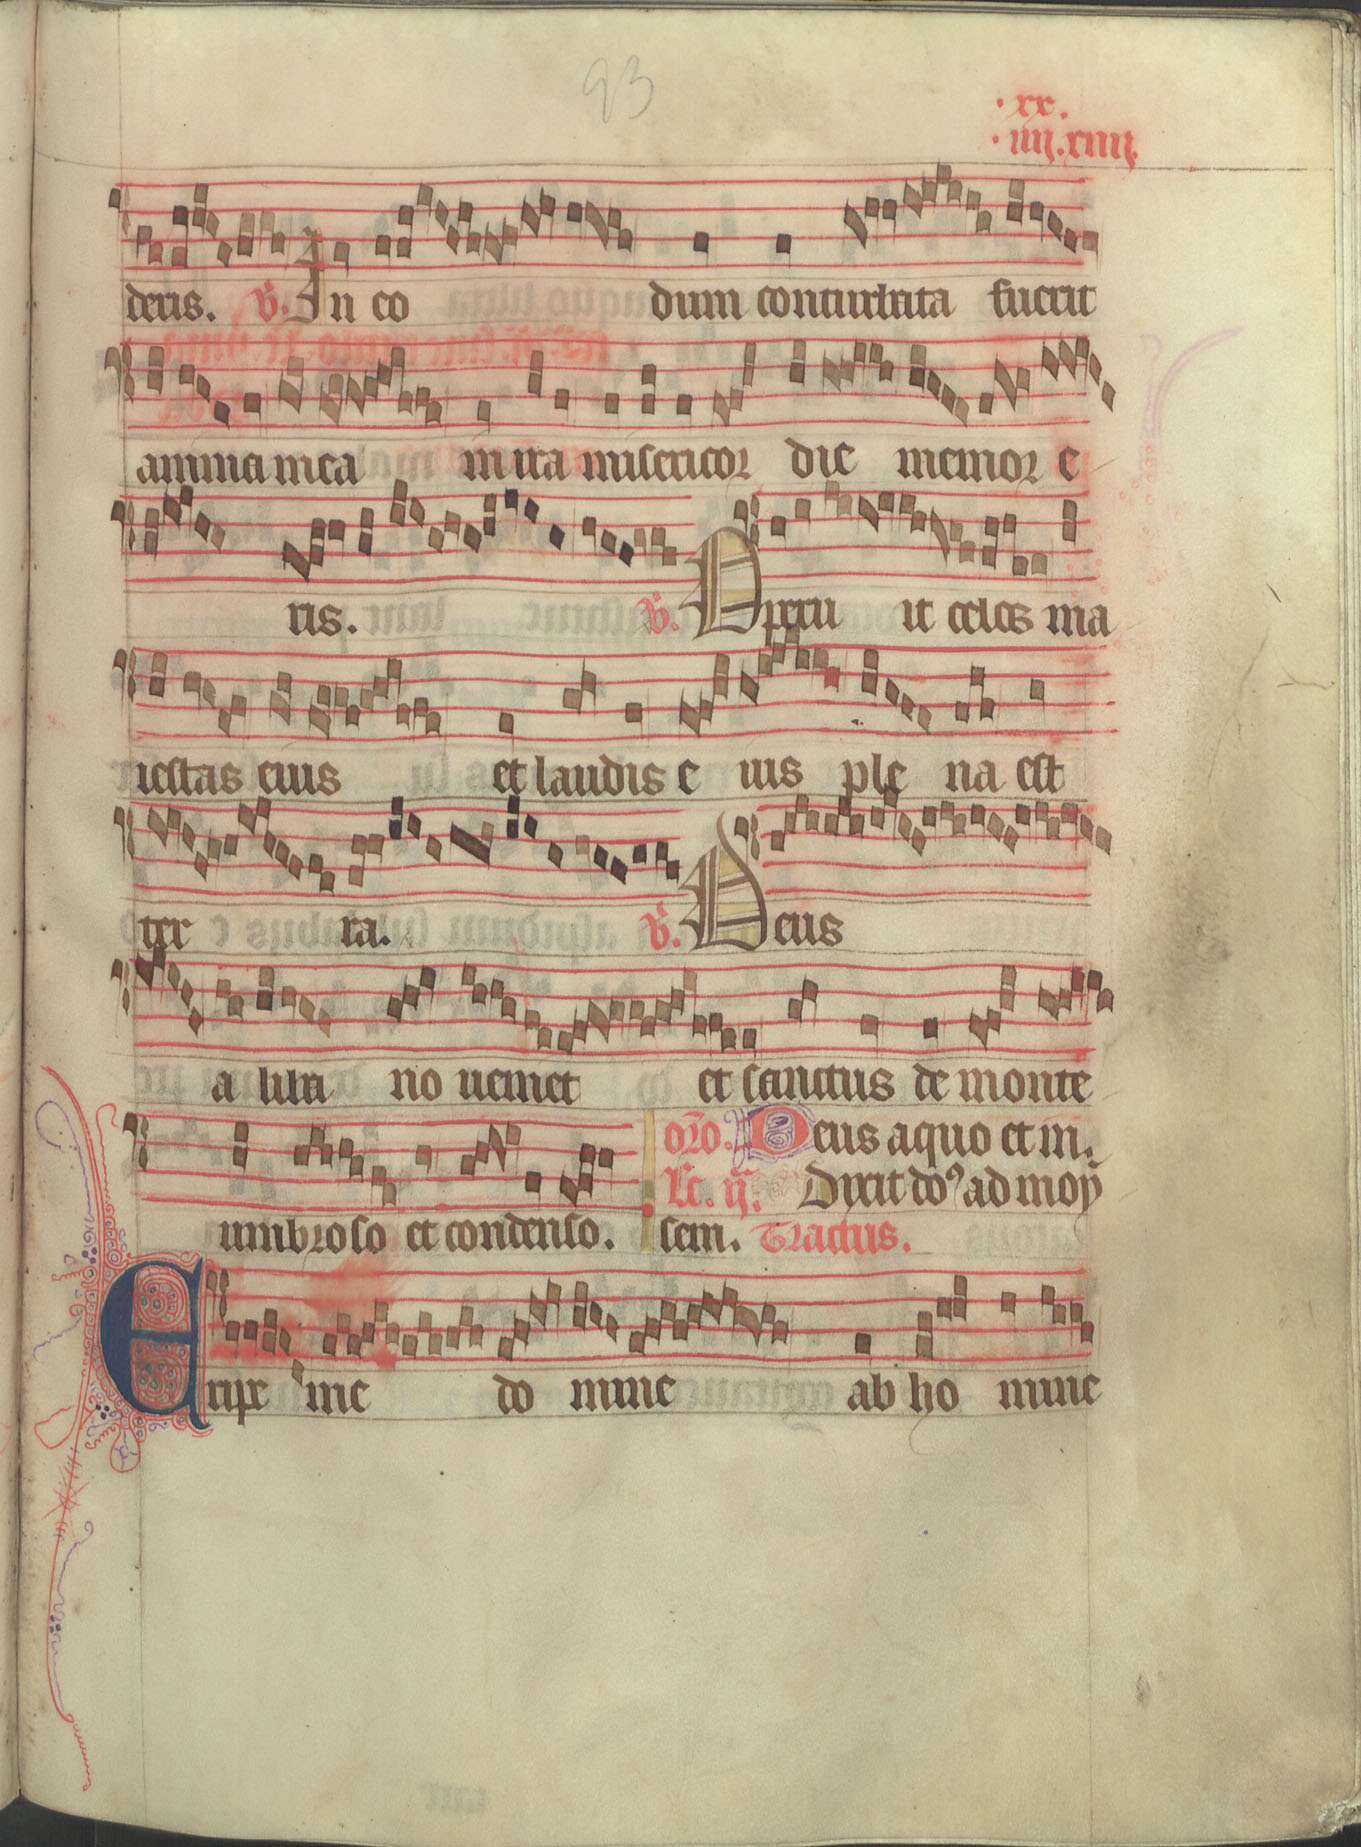 93
· xx.
· iiij. xiiij.
deris. V. In eo dum conturbata fuerit
anima mea in ira misericor die memor e
ris. V. Operu it celos ma
iestas eius et laudis e ius ple na est
ter ra. V. Deus
a liba no ueniet et sanctus de monte
oro. Deus a quo et in.
Lc. ij. Dixit do⁹ ad moy
umbroso et condenso. sem. Tractus.
Eripe me do mine ab ho mine